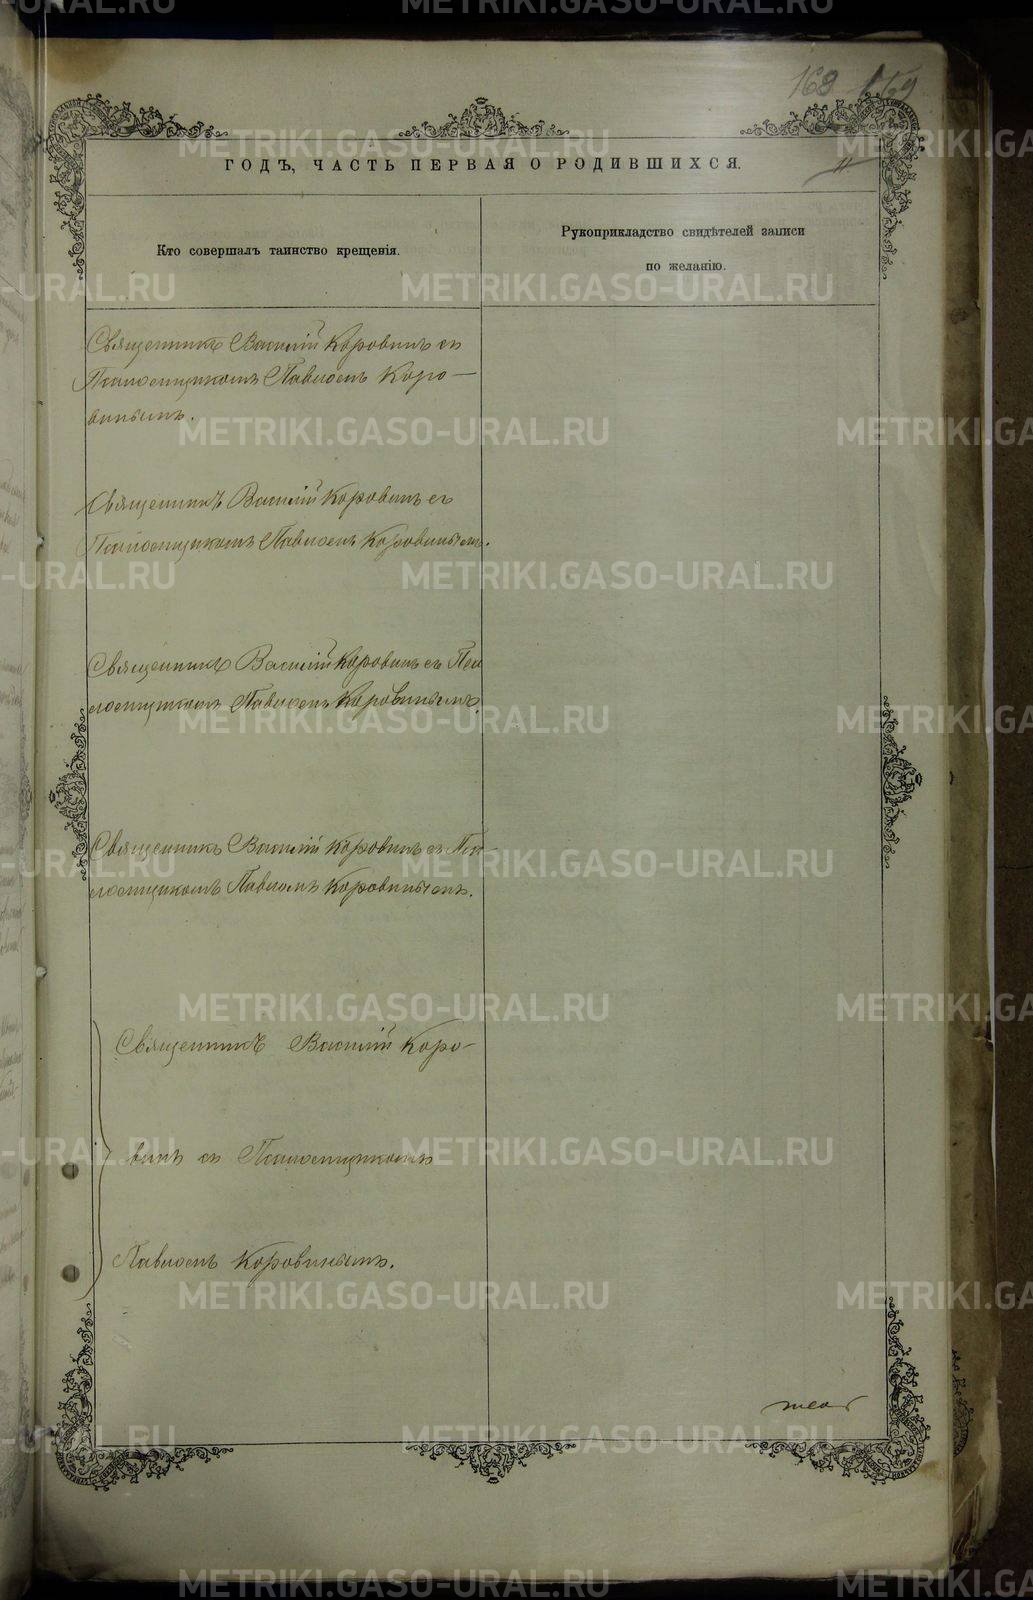 168 169
ГОДЪ, ЧАСТЬ ПЕРВАЯ О РОДИВШИХСЯ.
11
Кто совершалъ таинство крещенія.
Рукоприкладство свидѣтелей записи
по желанію.
Священникъ Василій Коровинъ съ
Псаломщикомъ Павломъ Коро-
винымъ.
Священникъ Василій Коровинъ съ
Псаломщикомъ Павломъ Коровинымъ.
Священникъ Василій Коровинъ съ Пса
ломщикомъ Павломъ Коровинымъ.
Священникъ Василій Коровинъ съ Пса-
ломщикомъ Павломъ Коровинымъ.
Священникъ Василій Коро-
винъ съ Псаломщикомъ
Павломъ Коровинымъ.
METRIKI.GASO-URAL.RU